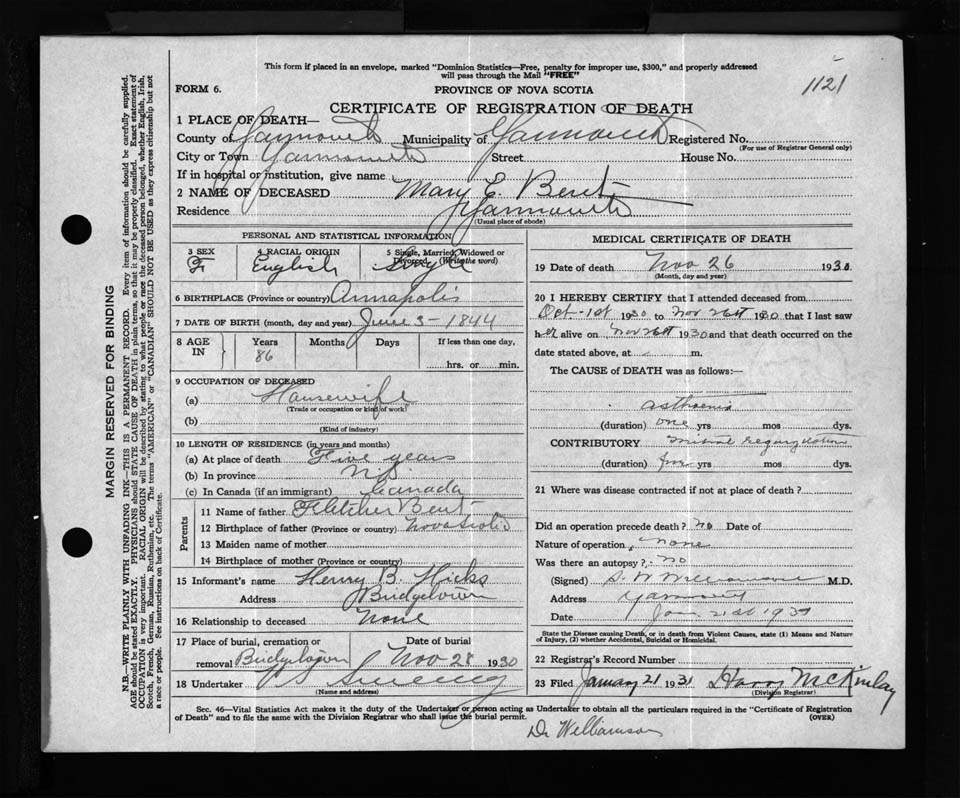 This form if placed in an envelope, marked "Dominion Statistics—Free, penalty for improper use, $300," and properly addressed
will pass through the Mail "FREE"
1121
FORM 6.
PROVINCE OF NOVA SCOTIA
CERTIFICATE OF REGISTRATION OF DEATH
1 PLACE OF DEATH—
County of Yarmouth Municipality of Yarmouth Registered No.
(For use of Registrar General only)
City or Town Yarmouth Street House No.
If in hospital or institution, give name
2 NAME OF DECEASED Mary E. Bent
Residence Yarmouth
(Usual place of abode)
PERSONAL AND STATISTICAL INFORMATION
3 SEX 4 RACIAL ORIGIN 5 Single, Married, Widowed or
Divorced (Write the word)
F English Single
6 BIRTHPLACE (Province or country) Annapolis
7 DATE OF BIRTH (month, day and year) June 3 - 1844
8 AGE IN Years Months Days If less than one day,
86 hrs. or min.
9 OCCUPATION OF DECEASED
(a) Housewife
(Trade or occupation or kind of work)
(b)
(Kind of industry)
10 LENGTH OF RESIDENCE (in years and months)
(a) At place of death Five years
(b) In province N.S.
(c) In Canada (if an immigrant) Canada
Parents
11 Name of father Fletcher Bent
12 Birthplace of father (Province or country) Nova Scotia
13 Maiden name of mother
14 Birthplace of mother (Province or country)
15 Informant's name Henry B. Hicks
Address Bridgetown
16 Relationship to deceased None
17 Place of burial, cremation or Date of burial
removal Bridgetown Nov 28 1930
18 Undertaker
(Name and address)
MEDICAL CERTIFICATE OF DEATH
19 Date of death Nov 26 1930
(Month, day and year)
20 I HEREBY CERTIFY that I attended deceased from
Oct - 1st 1930 to Nov 26th 1930 that I last saw
her alive on Nov 26th 1930 and that death occurred on the
date stated above, at m.
The CAUSE of DEATH was as follows:—
asthenia
(duration) one yrs mos dys.
CONTRIBUTORY Mitral regurgitation
(duration) yrs mos dys.
21 Where was disease contracted if not at place of death?
Did an operation precede death? no Date of
Nature of operation none
Was there an autopsy? no
(Signed) S. W. Williamson M.D.
Address Yarmouth
Date Jan 21st 193
State the Disease causing Death, or in death from Violent Causes, state (1) Means and Nature
of Injury, (2) whether Accidental, Suicidal or Homicidal.
22 Registrar's Record Number
23 Filed January 21 1931 Harry McKinlay
(Division Registrar)
Sec. 46—Vital Statistics Act makes it the duty of the Undertaker or person acting as Undertaker to obtain all the particulars required in the "Certificate of Registration
of Death" and to file the same with the Division Registrar who shall issue the burial permit.
(OVER)
Dr Williamson
MARGIN RESERVED FOR BINDING
N.B.—WRITE PLAINLY WITH UNFADING INK—THIS IS A PERMANENT RECORD. Every item of information should be carefully supplied.
AGE should be stated EXACTLY. PHYSICIANS should STATE CAUSE OF DEATH in plain terms, so that it may be properly classified. Exact statement of
OCCUPATION is very important. RACIAL ORIGIN will be described by stating to what people or race the deceased person belonged, whether English, Irish,
Scotch, French, German, Russian, Ruthenian, etc. The terms "AMERICAN" or "CANADIAN" SHOULD NOT BE USED as they express citizenship but not
a race or people. See instructions on back of Certificate.